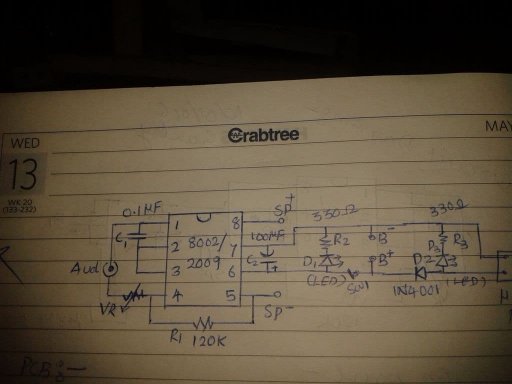 Crabtree
WED
MAY
13
WK 20
(133-232)
0.1MF
SP+
330Ω
330Ω
1
8
C1
2
8002/
7
100MF
R2
B-
R3
Aud
3
2009
6
C2
+
D1
B+
D2
D3
(LED)
SW1
(LED)
4
5
IN4001
VR
SP-
R1 120K
PCB:-